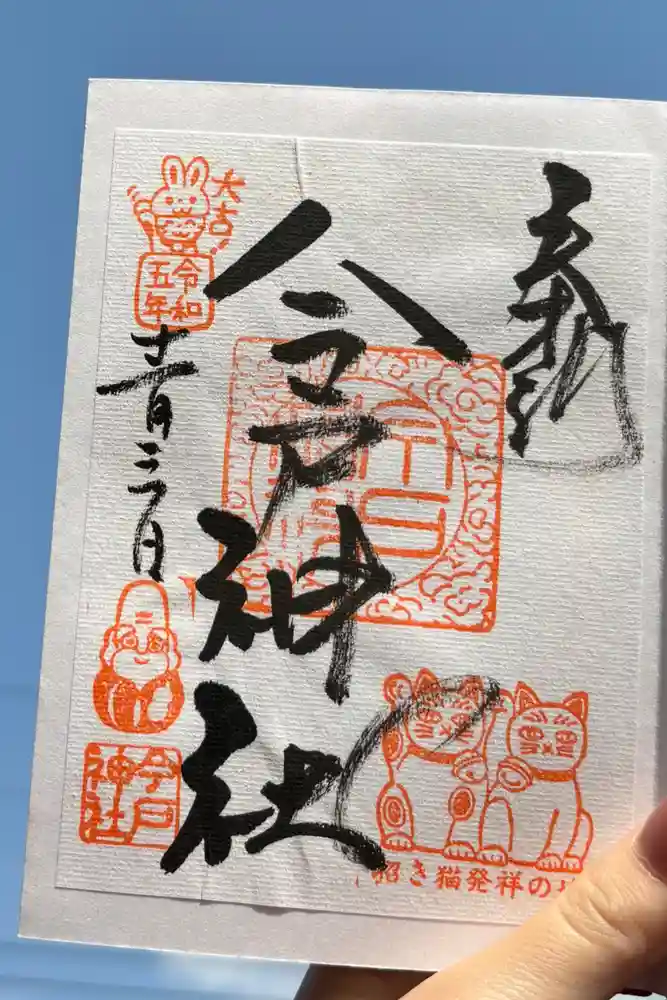 奉拝
今戸神社
大吉!
令和
五年
十一月三日
今戸
神社
招き猫発祥の